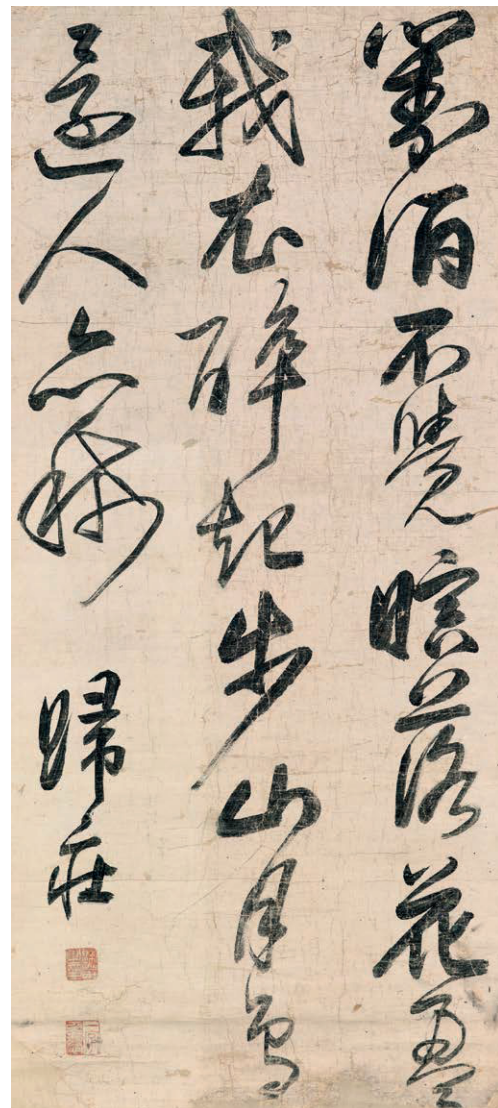 對酒不覺暝落花盈
我衣醉起步山月鳥
還人亦稀 歸莊